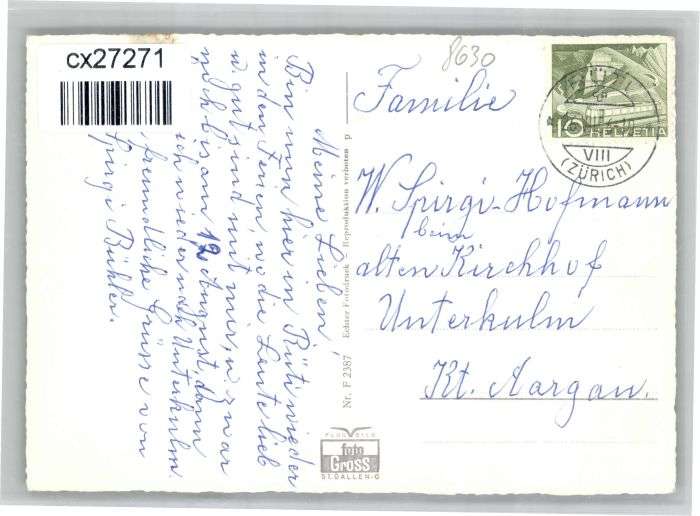 cx27271
8630
HELVETIA
10
VIII
(ZÜRICH)
Familie
W. Spirgi-Hofmann
beim
alten Kirchhof
Unterkulm
Kt. Aargau.
Meine Lieben,
Bin nun hier in Rüti wieder
in den Ferien, wo die Leute lieb
u. gut sind mit mir, u zwar
noch bis am 12 August, dann
ich wieder nach Unterkulm.
freundliche Grüsse von
Spirgi Bühler.
Nr. F 2387 Echter Fotodruck – Reproduktion verboten p
FLUGBILD
foto
Gross
ST. GALLEN-O